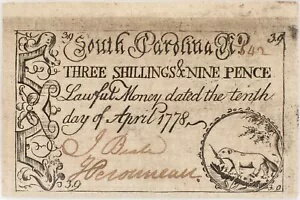 39 South Carolina No. 39
THREE SHILLINGS & NINE PENCE
Lawful Money dated the tenth
day of April 1778,
39